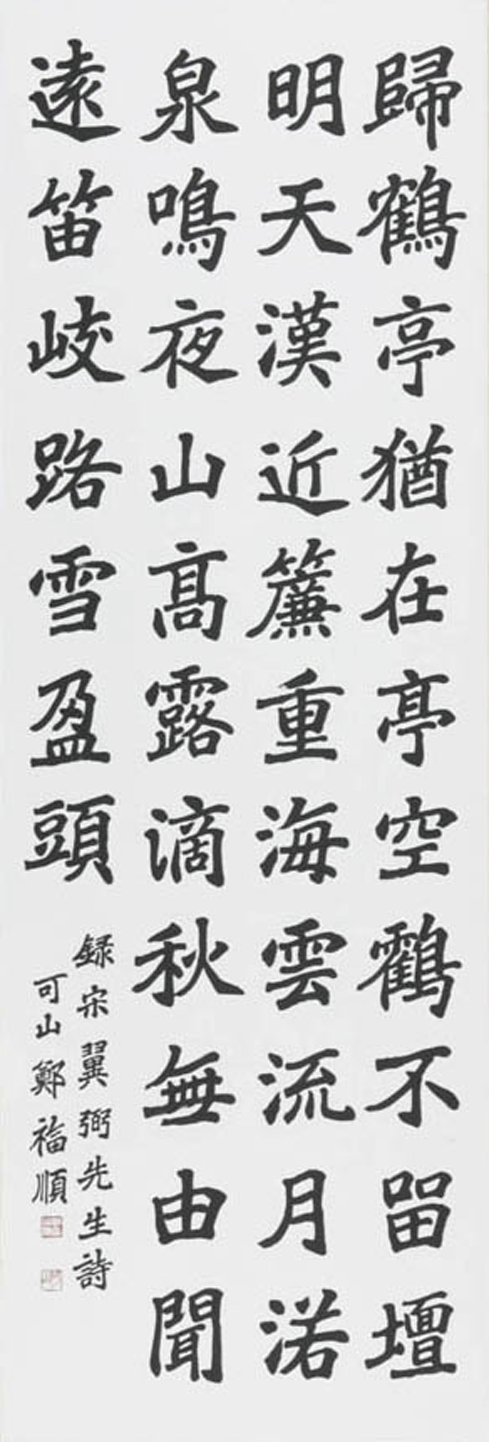 歸鶴亭猶在亭空鸖不留壇
明天漢近簾重海雲流月渃
泉鳴夜山髙露滴秋無由聞
遠笛岐路雪盈頭
録宋翼弼先生詩
可山鄭福順